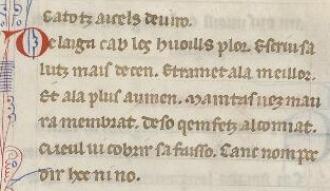 Eatotz aicels de uiro.
De laigua cab los huoills plor. Escriu sa
lutz mais de cen. Etramet ala meillor.
Et ala plus auinen. Maintas uez mau
ra membrat. de so qem fetz al comiat.
Qieu li ui cobrir sa faisso. Canc nom poc
dir hoc ni no.